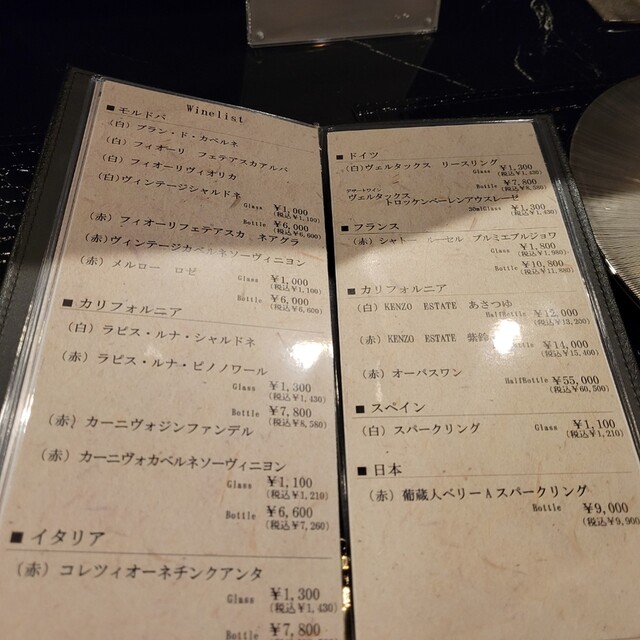 Winelist
■ モルドバ
(白) ブラン・ド・カベルネ
(白) フィオーリ フェテアスカアルバ
(白) フィオーリヴィオリカ
(白) ヴィンテージシャルドネ
Glass ¥1,000
(税込¥1,100)
Bottle ¥6,000
(税込¥6,600)
(赤) フィオーリフェテアスカ ネアグラ
(赤) ヴィンテージカベルネソーヴィニヨン
(赤) メルロー ロゼ
Glass ¥1,000
(税込¥1,100)
Bottle ¥6,000
(税込¥6,600)
■ カリフォルニア
(白) ラピス・ルナ・シャルドネ
(赤) ラピス・ルナ・ピノノワール
Glass ¥1,300
(税込¥1,430)
Bottle ¥7,800
(税込¥8,580)
(赤) カーニヴォジンファンデル
(赤) カーニヴォカベルネソーヴィニヨン
Glass ¥1,100
(税込¥1,210)
Bottle ¥6,600
(税込¥7,260)
■ イタリア
(赤) コレツィオーネチンクアンタ
Glass ¥1,300
(税込¥1,430)
Bottle ¥7,800
■ ドイツ
(白) ヴェルタックス リースリング
Glass ¥1,300
(税込¥1,430)
Bottle ¥7,800
(税込¥8,580)
デザートワイン
ヴェルタックス
トロッケンベーレンアウスレーゼ
Glass ¥1,300
(税込¥1,430)
■ フランス
(赤) シャトー ルーセル プルミエブルジョワ
Glass ¥1,800
(税込¥1,980)
Bottle ¥10,800
(税込¥11,880)
■ カリフォルニア
(白) KENZO ESTATE あさつゆ
HalfBottle ¥12,000
(税込¥13,200)
(赤) KENZO ESTATE 紫鈴
¥14,000
(税込¥15,400)
(赤) オーパスワン
HalfBottle ¥55,000
(税込¥60,500)
■ スペイン
(白) スパークリング Glass ¥1,100
(税込¥1,210)
■ 日本
(赤) 葡蔵人ベリーAスパークリング
Bottle ¥9,000
(税込¥9,900